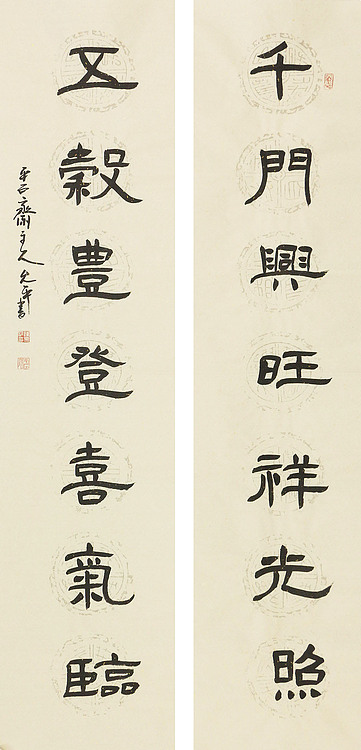 千門興旺祥光照
五穀豐登喜氣臨
平正齋主人允年書